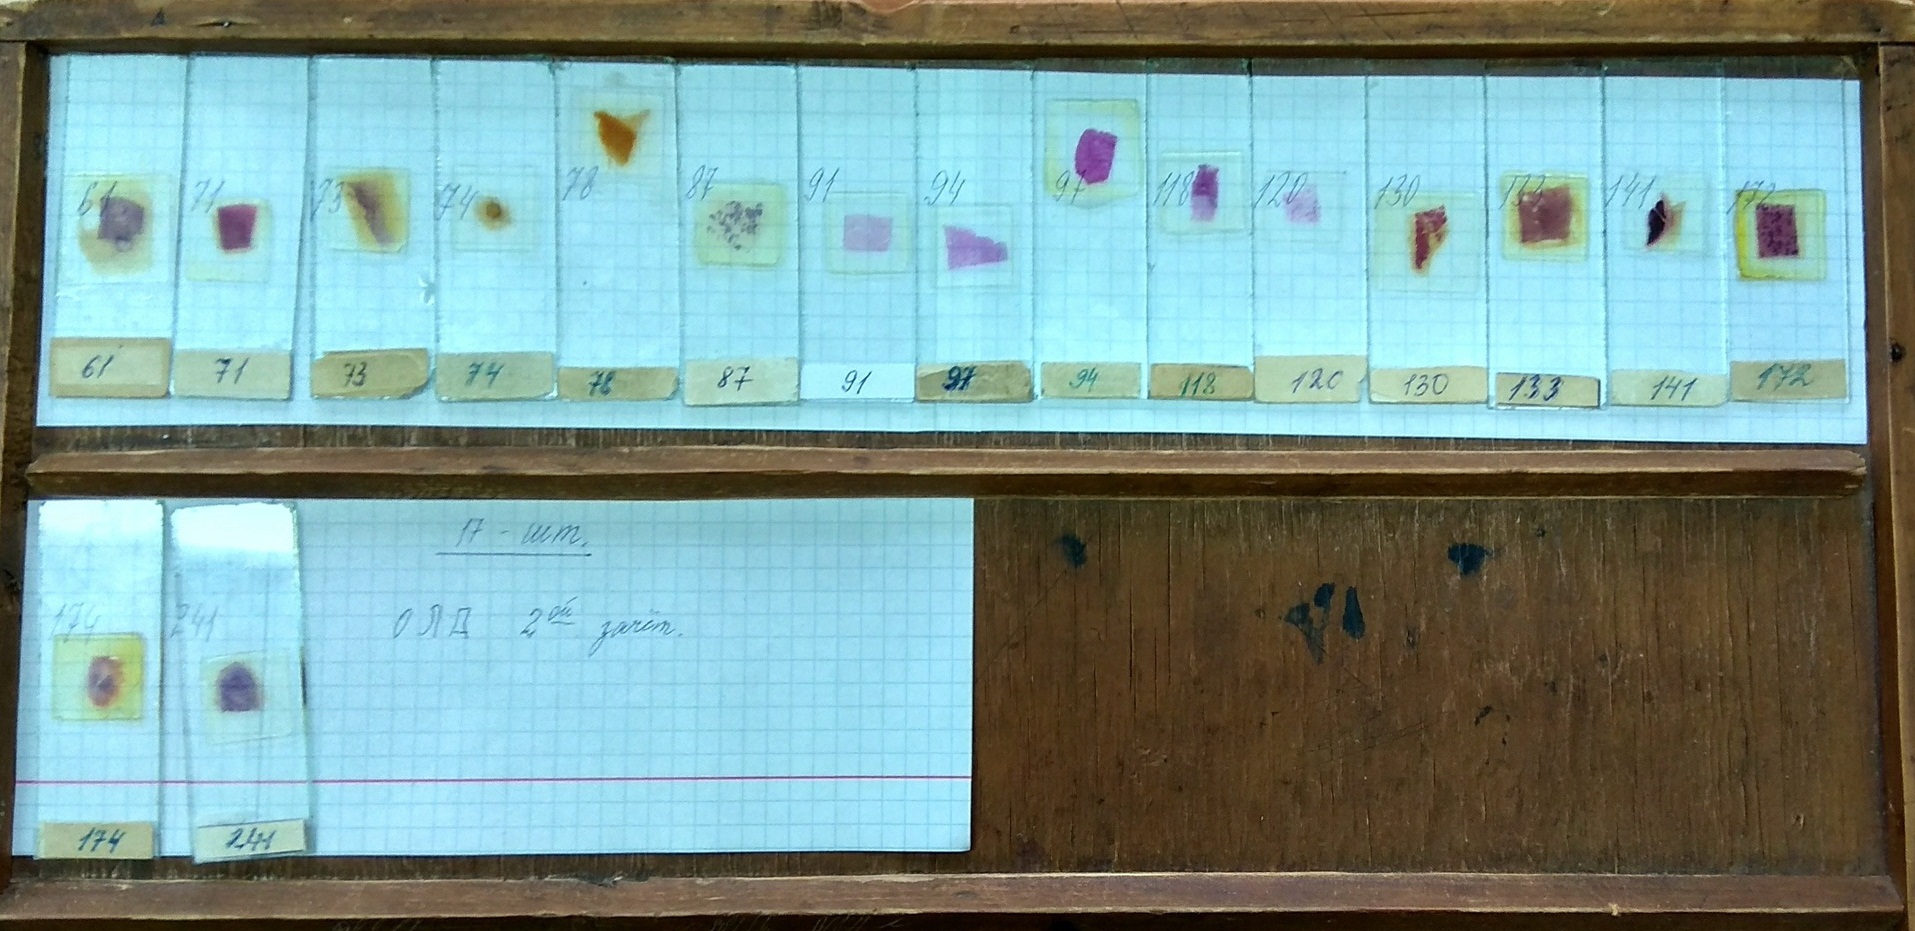 61 71 73 74 78 87 91 94 97 118 120 130 133 141 172
61 71 73 74 78 87 91 97 94 118 120 130 133 141 172
17 - шт.
174 241
ОЛД 2ой зачёт.
174 241